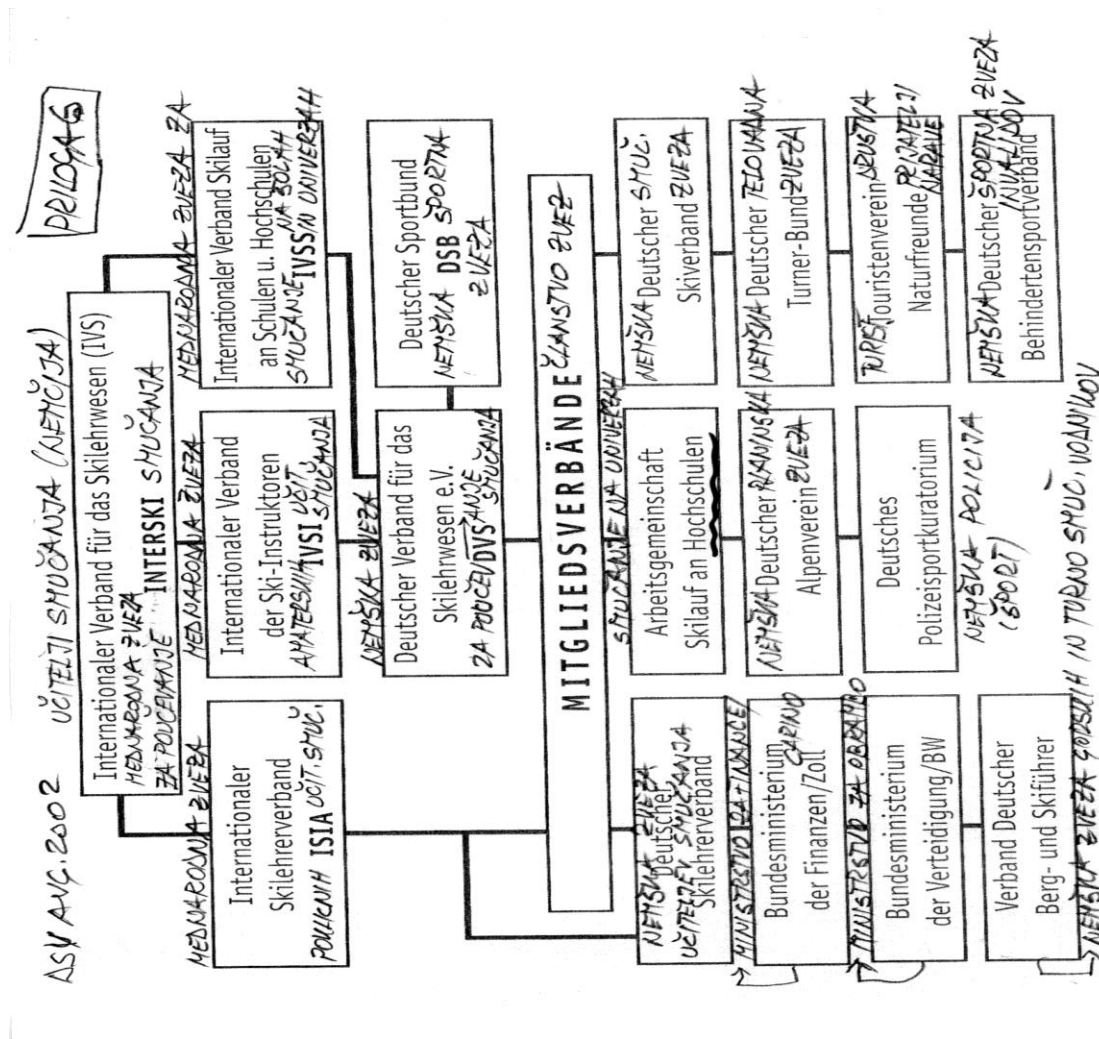 PRILOGA 6
DSV AVG. 2002 UČITELJI SMUČANJA (NEMČIJA)
Internationaler Verband für das Skilehrwesen (IVS)
MEDNARODNA ZVEZA
ZA POUČEVANJE INTERSKI SMUČANJA
MEDNARODNA ZVEZA
Internationaler
Skilehrerverband
POKLICNIH ISIA UČIT. SMUČ.
MEDNARODNA ZVEZA
Internationaler Verband
der Ski-Instruktoren
AMATERSKIH IVSI UČIT. SMUČANJA
MEDNARODNA ZVEZA ZA
Internationaler Verband Skilauf
an Schulen u. Hochschulen
SMUČANJE IVSS NA ŠOLAH
IN UNIVERZAH
NEMŠKA ZVEZA
Deutscher Verband für das
Skilehrwesen e.V.
ZA POUČEVANJE DVS SMUČANJA
Deutscher Sportbund
NEMŠKA DSB ŠPORTNA
ZVEZA
MITGLIEDSVERBÄNDE ČLANSTVO ZVEZ
NEMŠKA ZVEZA
Deutscher
UČITELJEV SMUČANJA
Skilehrerverband
MINISTRSTVO ZA FINANCE/
Bundesministerium CARINO
der Finanzen/Zoll
MINISTRSTVO ZA OBRAMBO
Bundesministerium
der Verteidigung/BW
Verband Deutscher
Berg- und Skiführer
NEMŠKA ZVEZA GORSKIH IN TURNO SMUČ. VODNIKOV
SMUČANJE NA UNIVERZAH
Arbeitsgemeinschaft
Skilauf an Hochschulen
NEMŠKA Deutscher PLANINSKA
Alpenverein ZVEZA
Deutsches
Polizeisportkuratorium
NEMŠKA POLICIJA
(ŠPORT)
NEMŠKA Deutscher SMUČ.
Skiverband ZVEZA
NEMŠKA Deutscher TELOVADNA
Turner-Bund ZVEZA
TURIST. Touristenverein DRUŠTVA
Naturfreunde PRIJATELJI
NARAVE
NEMŠKA Deutscher ŠPORTNA ZVEZA
INVALIDOV
Behindertensportverband